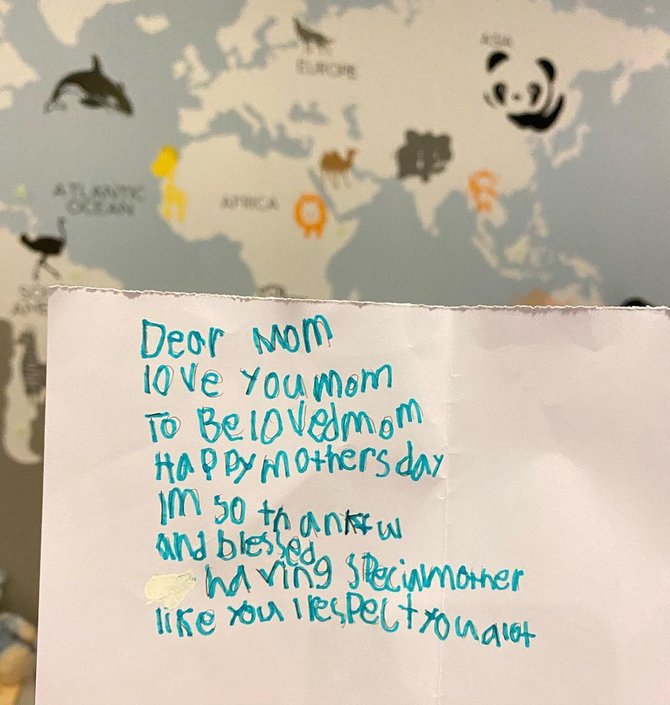 EUROPE
ASIA
ATLANTIC
OCEAN
AFRICA
Dear Mom
love you mom
To Beloved mom
Happy mothers day
Im so thankfw
and blessed
having specialmother
like you I respect you alot